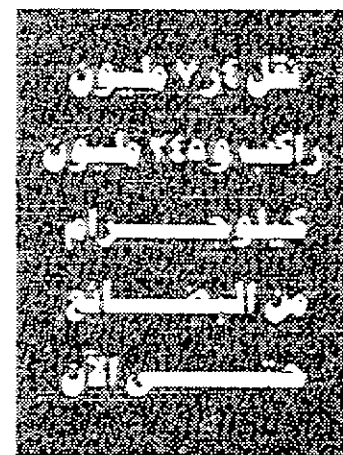 نقل ٧ر٤ مليون
راكب و٢٤٥ مليون
كيلوجــــرام
من البضــائع
حتــــى الآن